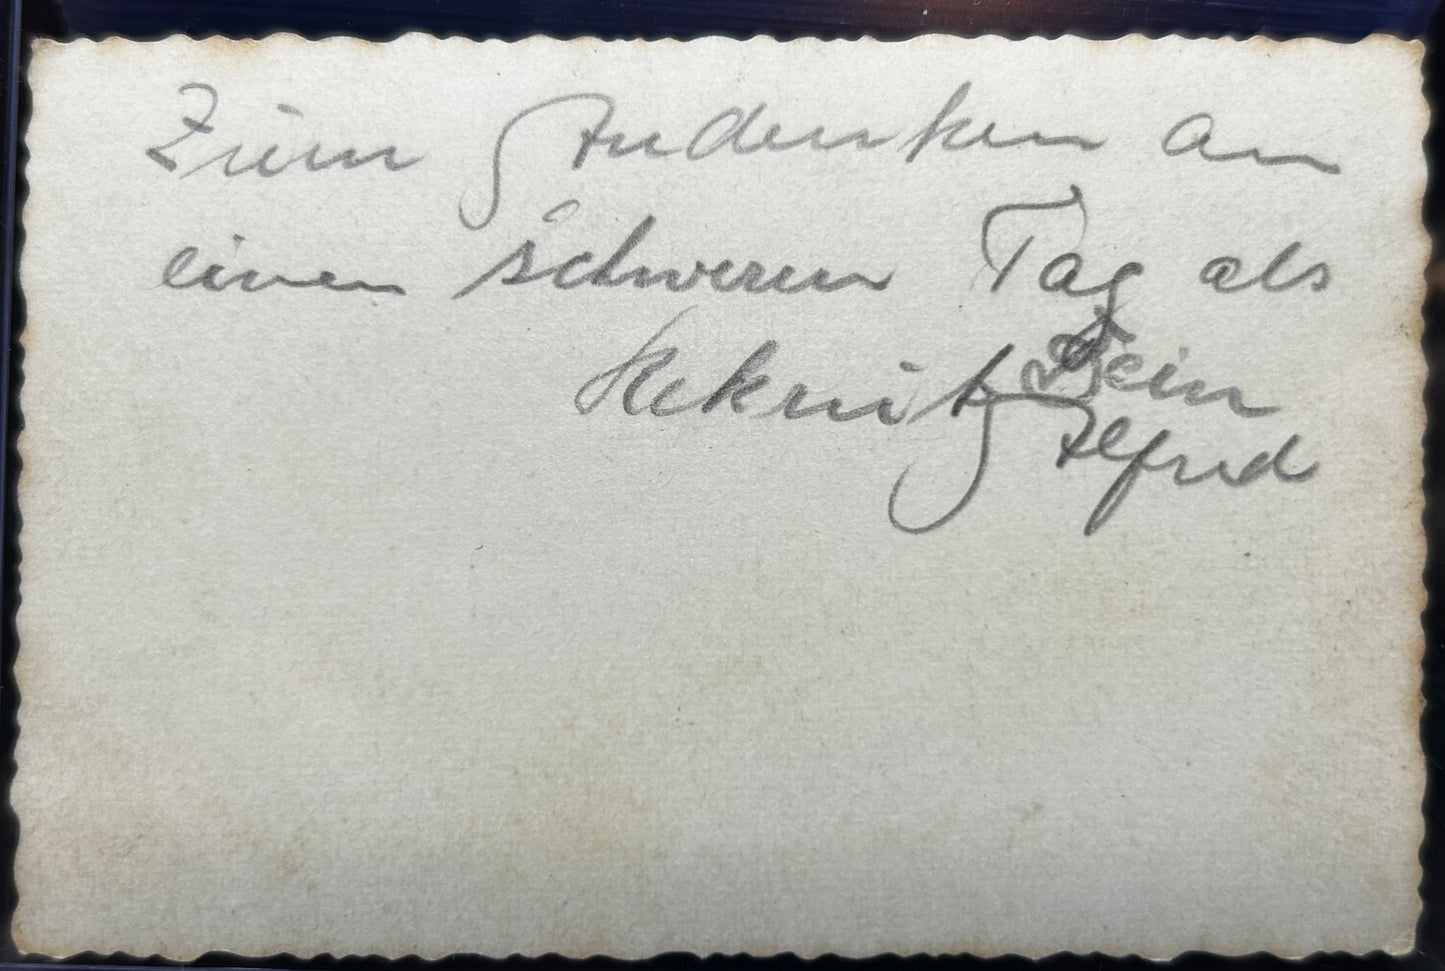 Zum Andenken an
einen schweren Tag als
Rekrut Dein
Alfred